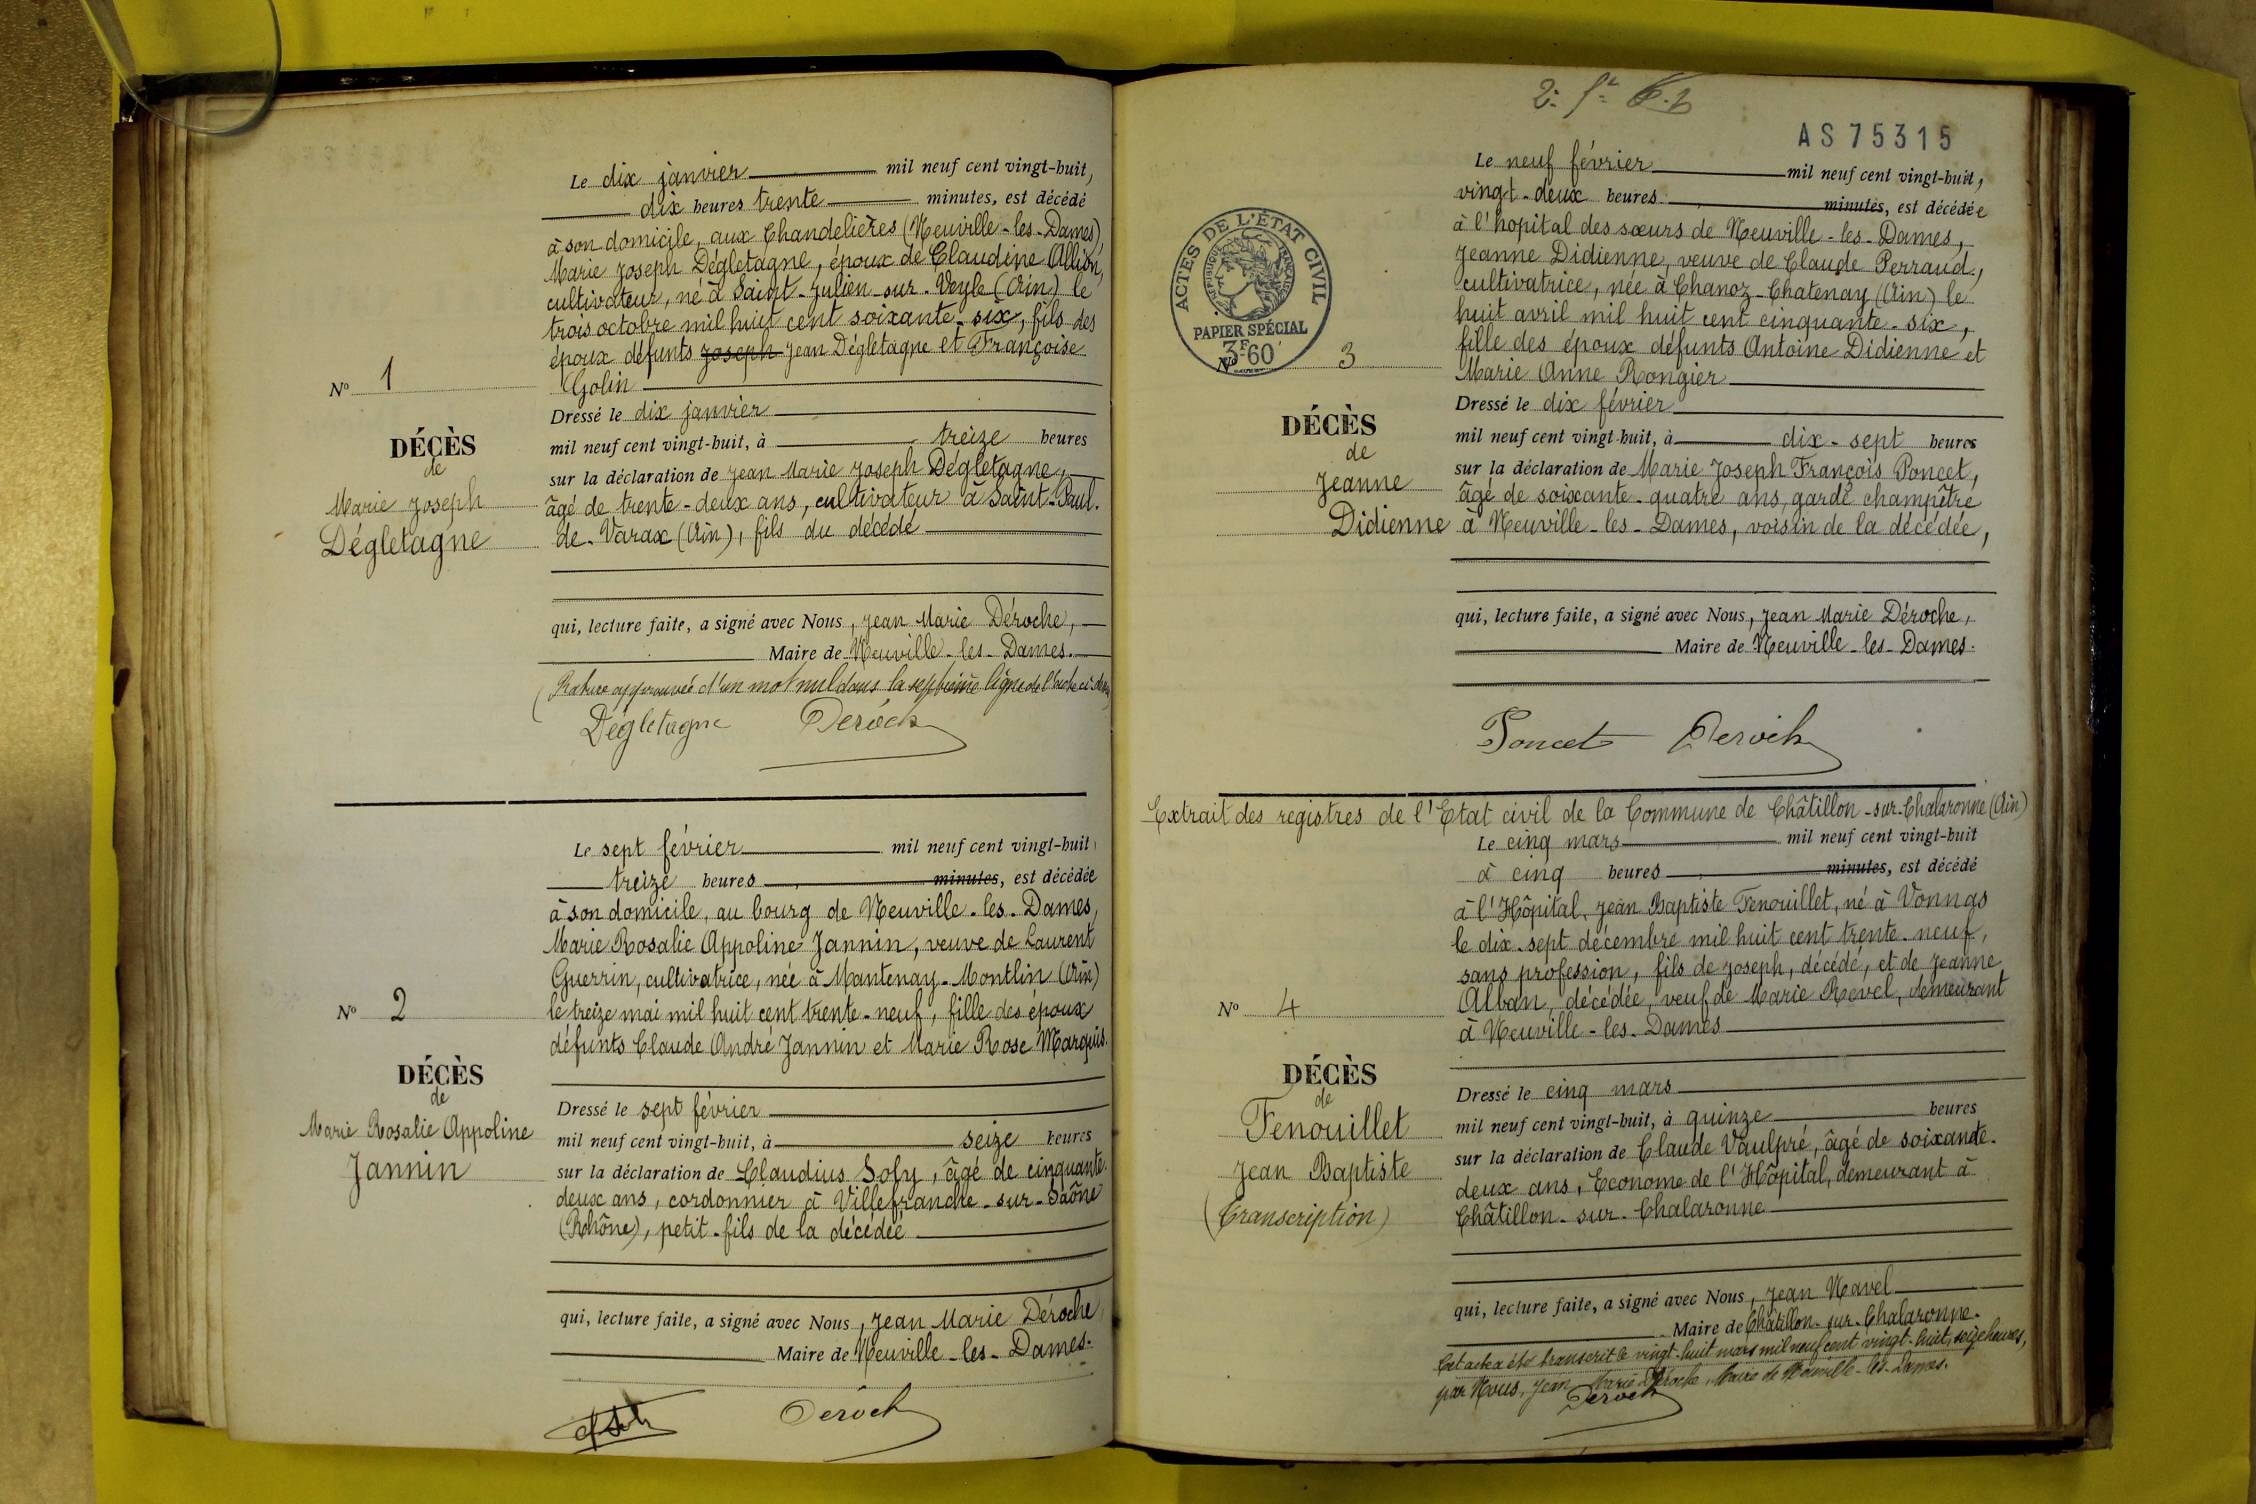 Le dix janvier mil neuf cent vingt-huit,
dix heures trente minutes, est décédé
à son domicile, aux Chandelières (Neuville-les-Dames),
Marie Joseph Dégletagne, époux de Claudine Allion,
cultivateur, né à Saint-Julien-sur-Veyle (Ain) le
trois octobre mil huit cent soixante-six, fils des
époux défunts Joseph Jean Dégletagne et Françoise
Golin
Nº 1
DÉCÈS
de
Marie Joseph
Dégletagne
Dressé le dix janvier
mil neuf cent vingt-huit, à treize heures
sur la déclaration de Jean Marie Joseph Dégletagne,
âgé de trente-deux ans, cultivateur à Saint-Paul-
de-Varax (Ain), fils du décédé
qui, lecture faite, a signé avec Nous, Jean Marie Déroche,
Maire de Neuville-les-Dames.
(Rature approuvée d'un mot nul dans la septième ligne de l'acte ci-dessus)
Dégletagne Déroch
Le sept février mil neuf cent vingt-huit,
treize heures minutes, est décédée
à son domicile, au bourg de Neuville-les-Dames,
Marie Rosalie Appoline Jannin, veuve de Laurent
Guerrin, cultivatrice, née à Mantenay-Montlin (Ain)
le treize mai mil huit cent trente-neuf, fille des époux
défunts Claude André Jannin et Marie Rose Marquis.
Nº 2
DÉCÈS
de
Marie Rosalie Appoline
Jannin
Dressé le sept février
mil neuf cent vingt-huit, à seize heures
sur la déclaration de Claudius Sofy, âgé de cinquante-
deux ans, cordonnier à Villefranche-sur-Saône
(Rhône), petit-fils de la décédée
qui, lecture faite, a signé avec Nous, Jean Marie Déroche,
Maire de Neuville-les-Dames.
Déroch
2e
AS 75315
Le neuf février mil neuf cent vingt-huit,
vingt-deux heures minutes, est décédée
à l'hopital des sœurs de Neuville-les-Dames,
Jeanne Didienne, veuve de Claude Perraud,
cultivatrice, née à Chanoz-Chatenay (Ain) le
huit avril mil huit cent cinquante-six,
fille des époux défunts Antoine Didienne et
Marie Anne Rongier
ACTES DE L'ÉTAT CIVIL
RÉPUBLIQUE FRANÇAISE
PAPIER SPÉCIAL
3F60
Nº 3
DÉCÈS
de
Jeanne
Didienne
Dressé le dix février
mil neuf cent vingt-huit, à dix-sept heures
sur la déclaration de Marie Joseph François Poncet,
âgé de soixante-quatre ans, garde champêtre
à Neuville-les-Dames, voisin de la décédée,
qui, lecture faite, a signé avec Nous, Jean Marie Déroche,
Maire de Neuville-les-Dames.
Poncet Déroch
Extrait des registres de l'Etat civil de la Commune de Châtillon-sur-Chalaronne (Ain)
Le cinq mars mil neuf cent vingt-huit
à cinq heures minutes, est décédé
à l'Hôpital, Jean Baptiste Fenouillet, né à Vonnas
le dix-sept décembre mil huit cent trente-neuf,
sans profession, fils de Joseph, décédé, et de Jeanne
Alban, décédée, veuf de Marie Revel, demeurant
à Neuville-les-Dames
Nº 4
DÉCÈS
de
Fenouillet
Jean Baptiste
(Transcription)
Dressé le cinq mars
mil neuf cent vingt-huit, à quinze heures
sur la déclaration de Claude Vaulpré, âgé de soixante-
deux ans, Econome de l'Hôpital, demeurant à
Châtillon-sur-Chalaronne
qui, lecture faite, a signé avec Nous, Jean Navel
Maire de Châtillon-sur-Chalaronne.
Cet acte a été transcrit le vingt-huit mars mil neuf cent vingt-huit, seize heures,
par Nous, Jean Marie Déroche, Maire de Neuville-les-Dames.
Déroch